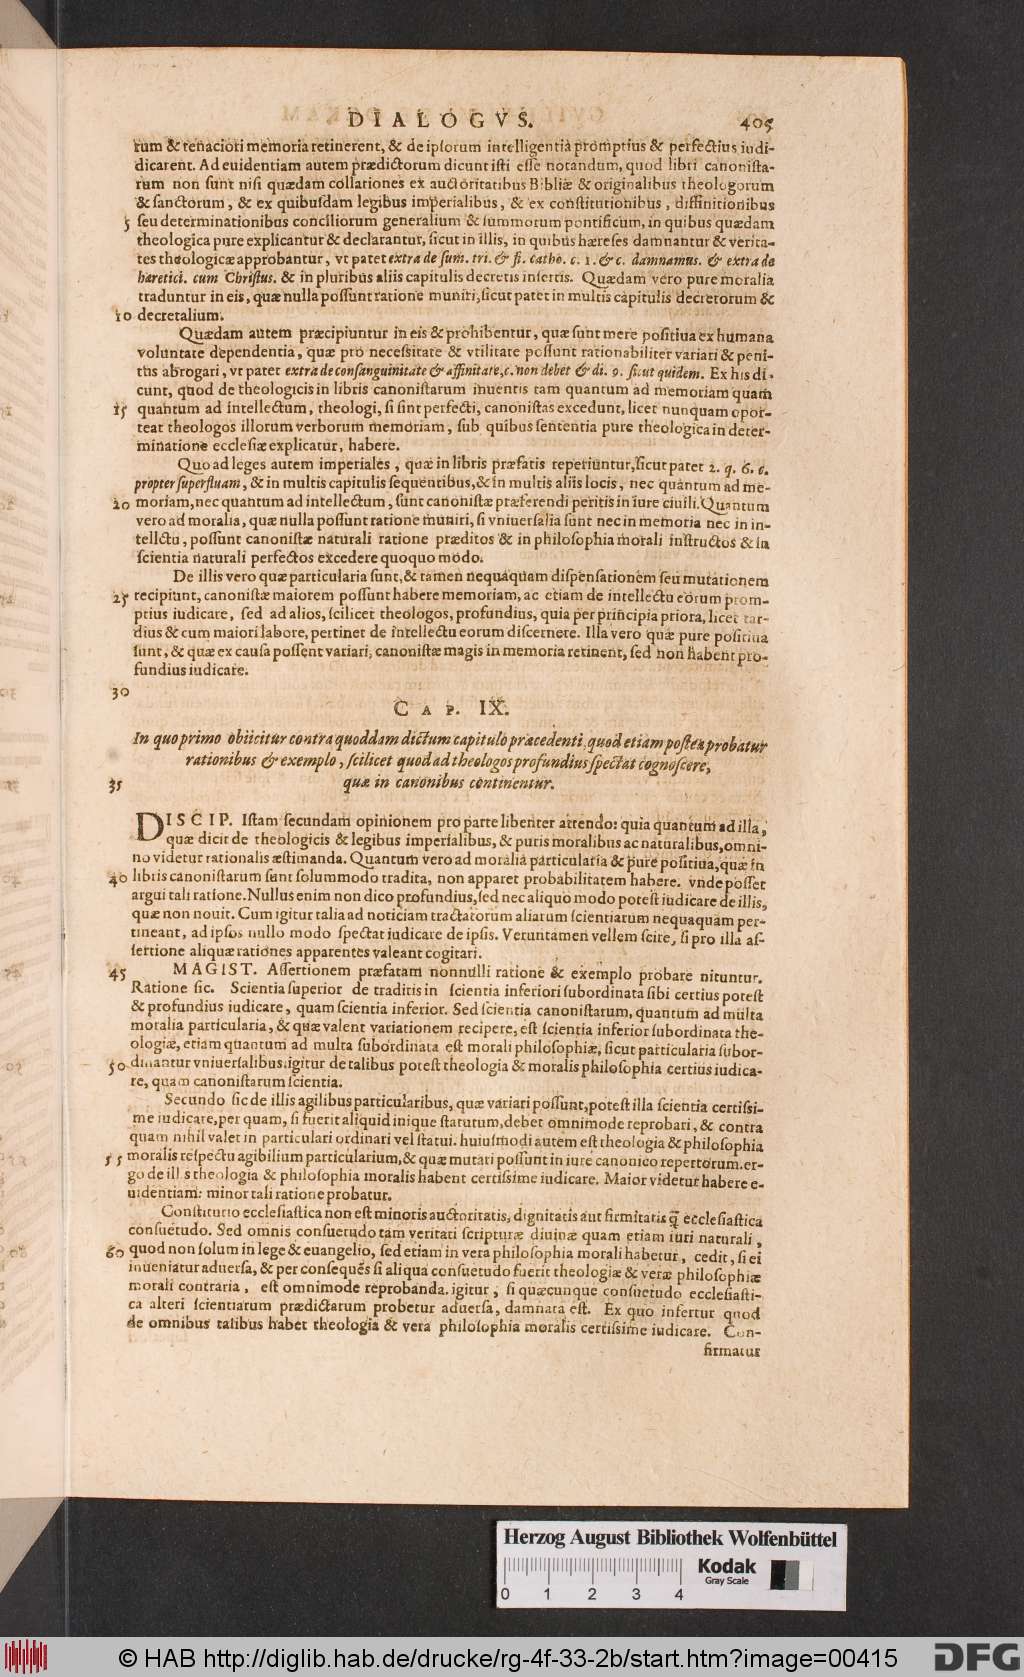 DIALOGVS. 405
tum & tenaciori memoria retinerent, & de ipsorum intelligentia promptius & perfectius iudi-
dicarent. Ad euidentiam autem prædictorum dicunt isti esse notandum, quod libri canonista-
rum non sunt nisi quædam collationes ex auctoritatibus Bibliæ & originalibus theologorum
& sanctorum, & ex quibusdam legibus imperialibus, & ex constitutionibus, diffinitionibus
5 seu determinationibus conciliorum generalium & summorum pontificum, in quibus quædam
theologica pure explicantur & declarantur, sicut in illis, in quibus hæreses damnantur & verita-
tes theologicæ approbantur, vt patet extra de sum. tri. & fi. catho. c. 1. & c. damnamus. & extra de
hæretici. cum Christus. & in pluribus aliis capitulis decretis insertis. Quædam vero pure moralia
traduntur in eis, quæ nulla possunt ratione muniri, sicut patet in multis capitulis decretorum &
10 decretalium.
Quædam autem præcipiuntur in eis & prohibentur, quæ sunt mere positiua ex humana
voluntate dependentia, quæ pro necessitate & vtilitate possunt rationabiliter variari & peni-
tus abrogari, vt patet extra de consanguinitate & affinitate, c. non debet & di. 9. sicut quidem. Ex his di-
cunt, quod de theologicis in libris canonistarum inuentis tam quantum ad memoriam quam
15 quantum ad intellectum, theologi, si sint perfecti, canonistas excedunt, licet nunquam opor-
teat theologos illorum verborum memoriam, sub quibus sententia pure theologica in deter-
minatione ecclesiæ explicatur, habere.
Quo ad leges autem imperiales, quæ in libris præfatis reperiuntur, sicut patet 2. q. 6. c.
propter superfluam, & in multis capitulis sequentibus, & in multis aliis locis, nec quantum ad me-
20 moriam, nec quantum ad intellectum, sunt canonistæ præferendi peritis in iure ciuili. Quantum
vero ad moralia, quæ nulla possunt ratione muniri, si vniuersalia sunt nec in memoria nec in in-
tellctu, possunt canonistæ naturali ratione præditos & in philosophia morali instructos & in
scientia naturali perfectos excedere quoquo modo.
De illis vero quæ particularia sunt, & tamen nequaquam dispensationem seu mutationem
25 recipiunt, canonistæ maiorem possunt habere memoriam, ac etiam de intellectu eorum prom-
ptius iudicare, sed ad alios, scilicet theologos, profundius, quia per principia priora, licet tar-
dius & cum maiori labore, pertinet de intellectu eorum discernere. Illa vero quæ pure positiua
sunt, & quæ ex causa possent variari, canonistæ magis in memoria retinent, sed non habent pro-
fundius iudicare.
30
CAP. IX.
In quo primo obiicitur contra quoddam dictum capitulo præcedenti, quod etiam postea probatur
rationibus & exemplo, scilicet quod ad theologos profundius spectat cognoscere,
35 quæ in canonibus continentur.
DISCIP. Istam secundam opinionem pro parte libenter attendo: quia quantum ad illa,
quæ dicit de theologicis & legibus imperialibus, & puris moralibus ac naturalibus, omni-
no videtur rationalis æstimanda. Quantum vero ad moralia particularia & pure positiua, quæ in
40 libris canonistarum sunt solummodo tradita, non apparet probabilitatem habere. vnde posset
argui tali ratione. Nullus enim non dico profundius, sed nec aliquo modo potest iudicare de illis,
quæ non nouit. Cum igitur talia ad noticiam tractatorum aliarum scientiarum nequaquam per-
tineant, ad ipsos nullo modo spectat iudicare de ipsis. Veruntamen vellem scire, si pro illa as-
sertione aliquæ rationes apparentes valeant cogitari.
45 MAGIST. Assertionem præfatam nonnulli ratione & exemplo probare nituntur.
Ratione sic. Scientia superior de traditis in scientia inferiori subordinata sibi certius potest
& profundius iudicare, quam scientia inferior. Sed scientia canonistarum, quantum ad multa
moralia particularia, & quæ valent variationem recipere, est scientia inferior subordinata the-
ologiæ, etiam quantum ad multa subordinata est morali philosophiæ, sicut particularia subor-
50 dinantur vniuersalibus: igitur de talibus potest theologia & moralis philosophia certius iudica-
re, quam canonistarum scientia.
Secundo sic de illis agilibus particularibus, quæ variari possunt, potest illa scientia certissi-
me iudicare, per quam, si fuerit aliquid inique statutum, debet omnimode reprobari, & contra
quam nihil valet in particulari ordinari vel statui. huiusmodi autem est theologia & philosophia
55 moralis respectu agibilium particularium, & quæ mutari possunt in iure canonico repertorum. er-
go de illis theologia & philosophia moralis habent certissime iudicare. Maior videtur habere e-
uidentiam: minor tali ratione probatur.
Constitutio ecclesiastica non est minoris auctoritatis, dignitatis aut firmitatis q̃ ecclesiastica
consuetudo. Sed omnis consuetudo tam veritati scripturæ diuinæ quam etiam iuri naturali,
60 quod non solum in lege & euangelio, sed etiam in vera philosophia morali habetur, cedit, si ei
inueniatur aduersa, & per consequẽs si aliqua consuetudo fuerit theologiæ & veræ philosophiæ
morali contraria, est omnimode reprobanda. igitur, si quæcunque consuetudo ecclesiasti-
ca alteri scientiarum prædictarum probetur aduersa, damnata est. Ex quo infertur quod
de omnibus talibus habet theologia & vera philosophia moralis certissime iudicare. Con-
firmatur
Herzog August Bibliothek Wolfenbüttel
Kodak
Gray Scale
0 1 2 3 4
© HAB http://diglib.hab.de/drucke/rg-4f-33-2b/start.htm?image=00415
DFG